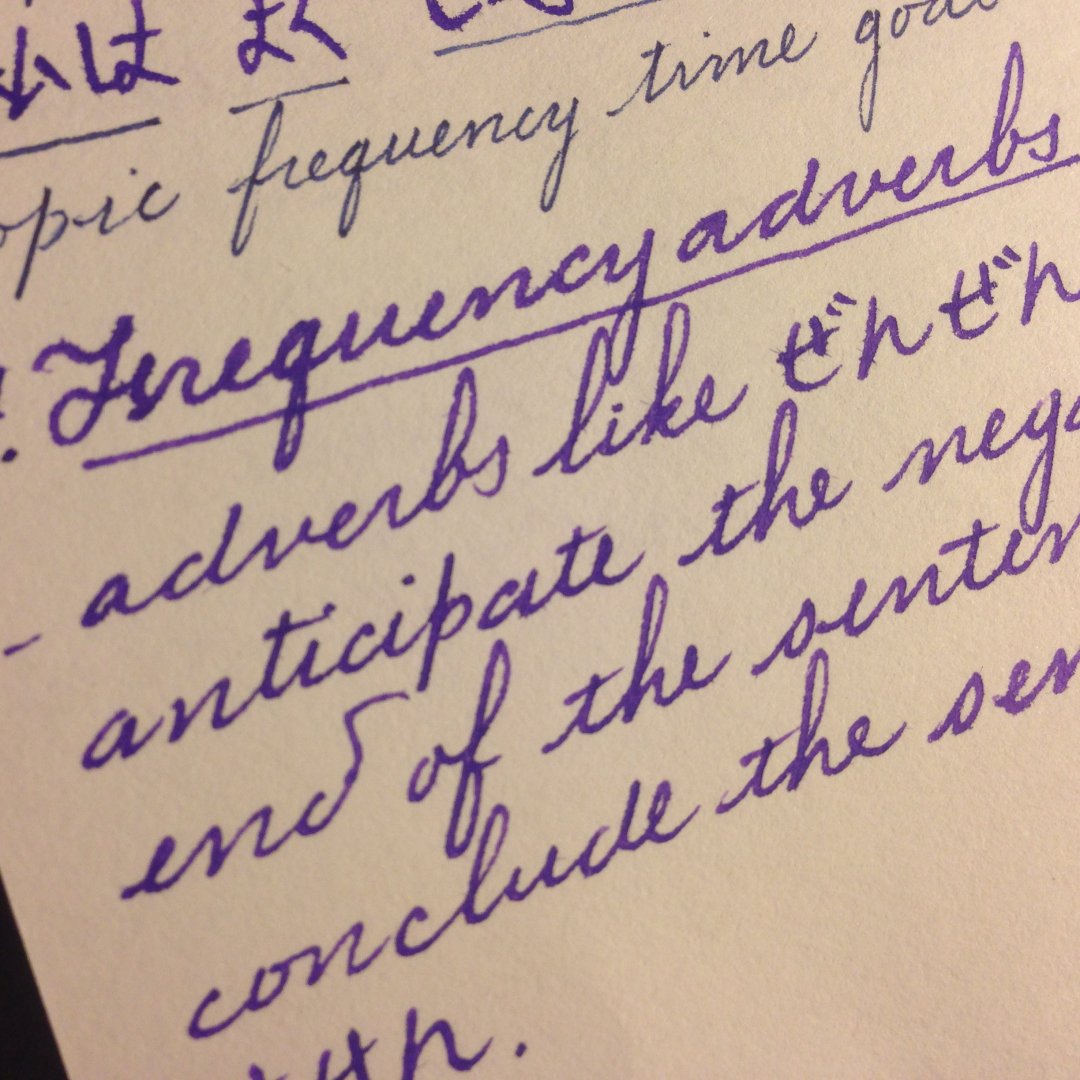 は よく
frequency time
Frequency adverbs
- adverbs like ぜんぜん
anticipate the
end of the
conclude the
せん.